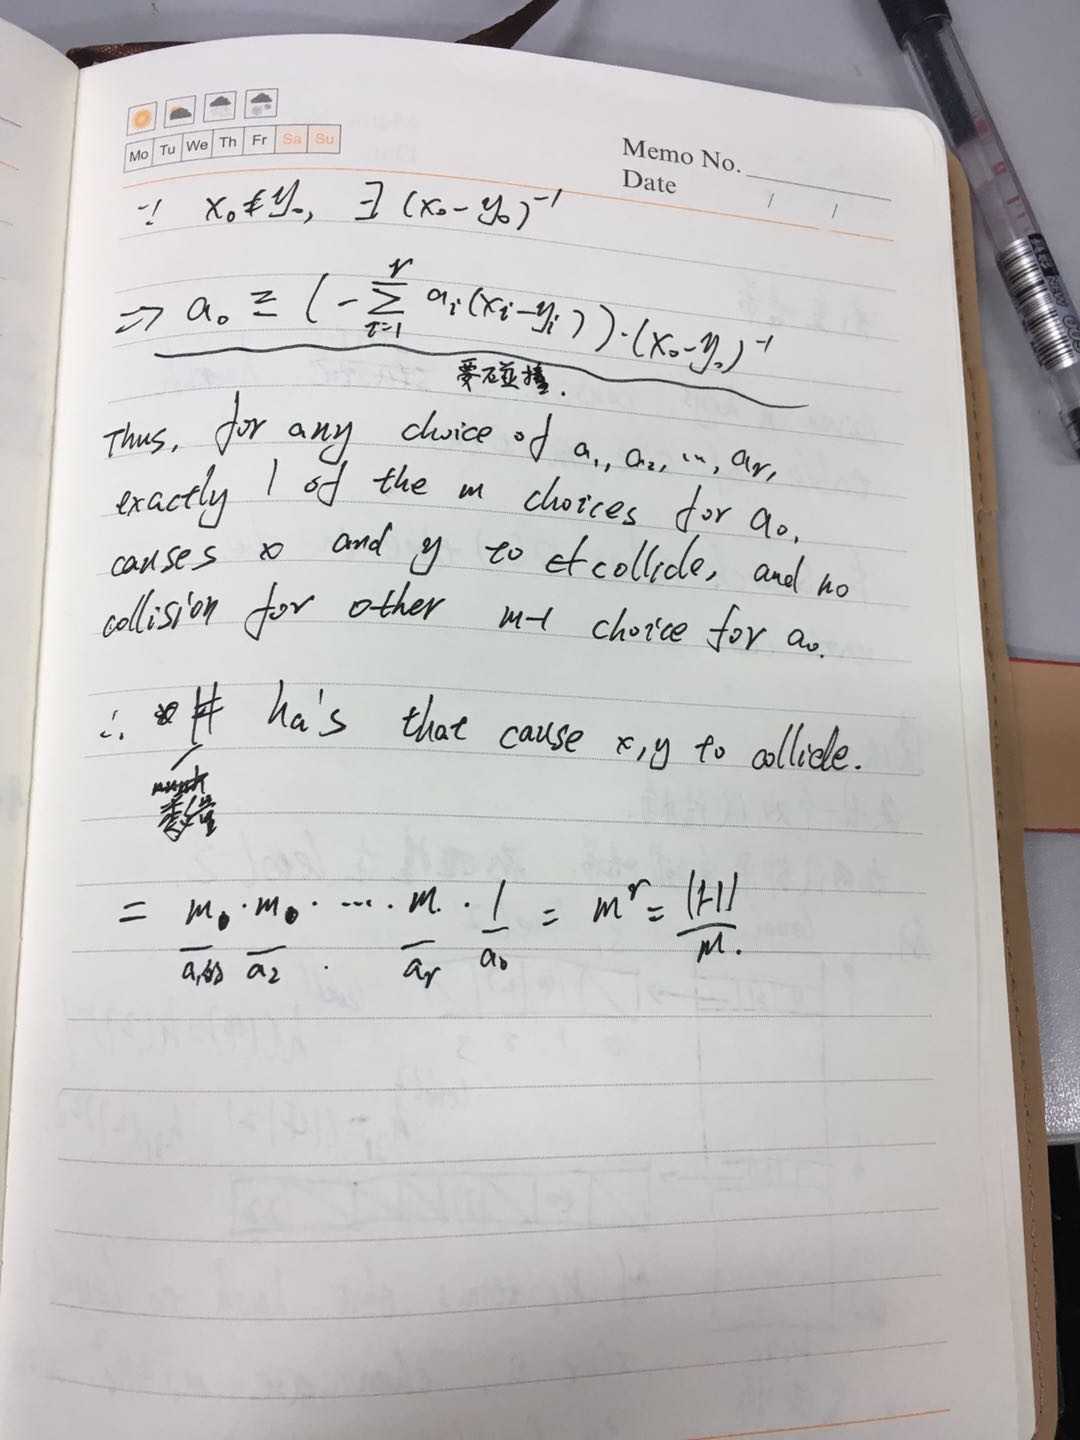 Mo Tu We Th Fr Sa Su
Memo No.
Date / /
∵ x₀≠y₀, ∃ (x₀-y₀)⁻¹
⇒ a₀ ≡ (-∑ᵢ₌₁ʳ aᵢ(xᵢ-yᵢ))·(x₀-y₀)⁻¹
要碰撞.
Thus, for any choice of a₁, a₂, ..., aᵣ,
exactly 1 of the m choices for a₀,
causes x and y to collide, and no
collision for other m-1 choice for a₀.
∴ # ha's that cause x,y to collide.
数量
= m · m · ... · m · 1 = mʳ = |H|/m.
a₁ a₂ · aᵣ a₀